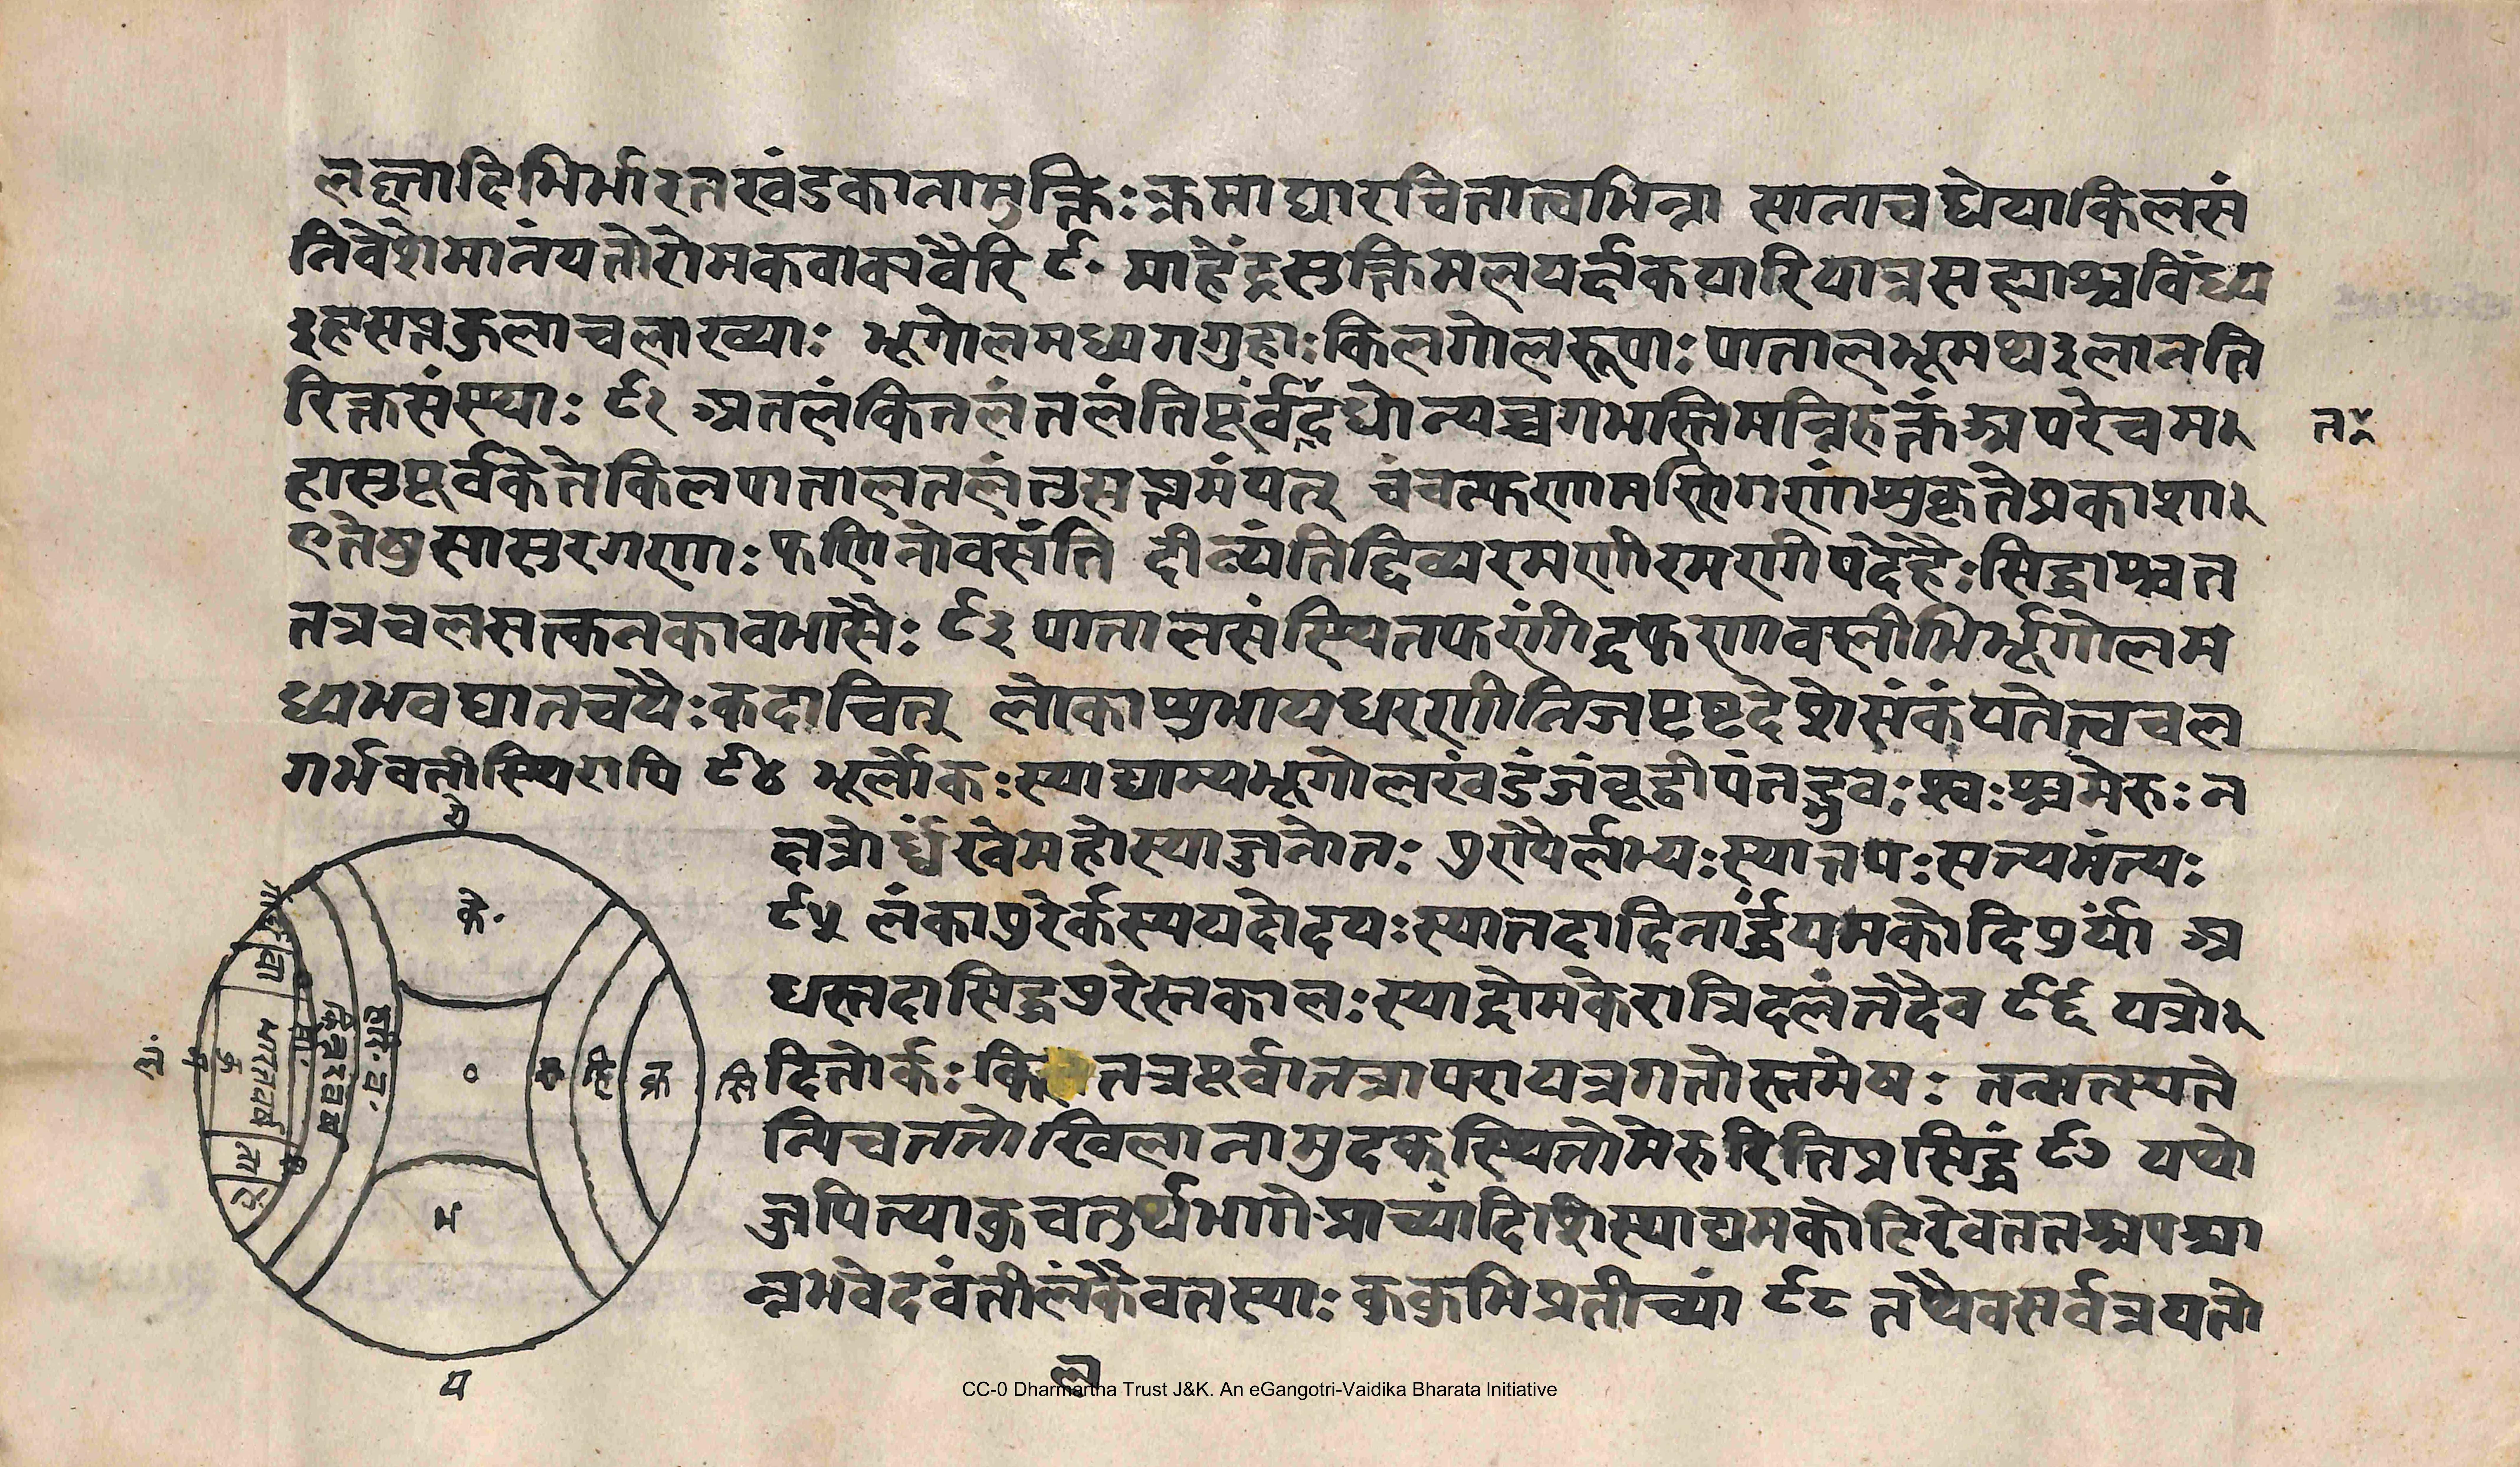 लह्लादिभिर्भारतखंडकानामुक्तिः क्रमाद्यारचितात्वभिन्ना सातावधेयाकिलसं
निवेशेमानंयतोरोमकवाक्यवैरि ९॰ माहेंद्रसुक्तिमलयर्दाकपारियात्रसह्याश्चविंध्य
३हसप्तकुलाचलाख्याः भूगोलमध्यगगुहाः किलगोलरूपाः पातालभूमय३लातति
रिक्तसंस्थाः ९२ अतलंकितलंतलंतिपूर्वंद्रधोन्यच्चगभस्तिमन्निरुक्तंअपरेचम
हासुपूर्वकेतेकिलपातालतलंतुसप्तमंयत् चंचत्फणामणिगणांशुकृतप्रकाशा
एतेषुसासुरगणाः फणिनोवसंति दीव्यंतिदिव्यरमणीरमणीपदेहैः सिद्धाश्चत
तत्रचलसत्कनकावभासैः ९३ पातालसंस्थितफणींद्रफणावस्तीभिर्भूगोलम
ध्यभवघातचयैः कदाचित् लोकाशुभायधरणीनिजपृष्टदेशेसंकंपतेत्वचल
गर्भवतीस्थिरापि ९४ भूर्लोकः स्याद्याम्यभूगोलखंडंजंबूद्वीपंतद्भुवः श्वः श्चमेरुः त
तत्रोर्ध्वंखेमहोस्याज्जनोतः ७रापैर्लभ्यः स्यात्तपः सत्यमंत्यः
९५ लंका७रेर्कस्ययदोदयः स्यात्तदादिनार्द्धंयमकोटि७र्यां अ
धस्तदासिद्ध७रेस्तकालः स्याद्रोमकेरात्रिदलंतदैव ९६ यत्रो
दितोर्कः कितत्रपूर्वातत्रापरायत्रगतोस्तमेषः तन्मत्स्यते
न्यिचततोखिलानामुदक्स्थितोमेरुरितिप्रसिद्धं ९७ यथो
ज्जयित्याकुचतुर्थभागेप्राच्यांदिशिस्याद्यमकोटिरेवततश्चपश्चा
न्नभवेदवंतीलंकैवतस्याः ककुभिप्रतीच्यां ९८ तथैवसर्वत्रयतो
ल
के॰
भ
प
सि
भारतवर्ष
किंनरखंड
हरि॰व॰
CC-0 Dharmartha Trust J&K. An eGangotri-Vaidika Bharata Initiative